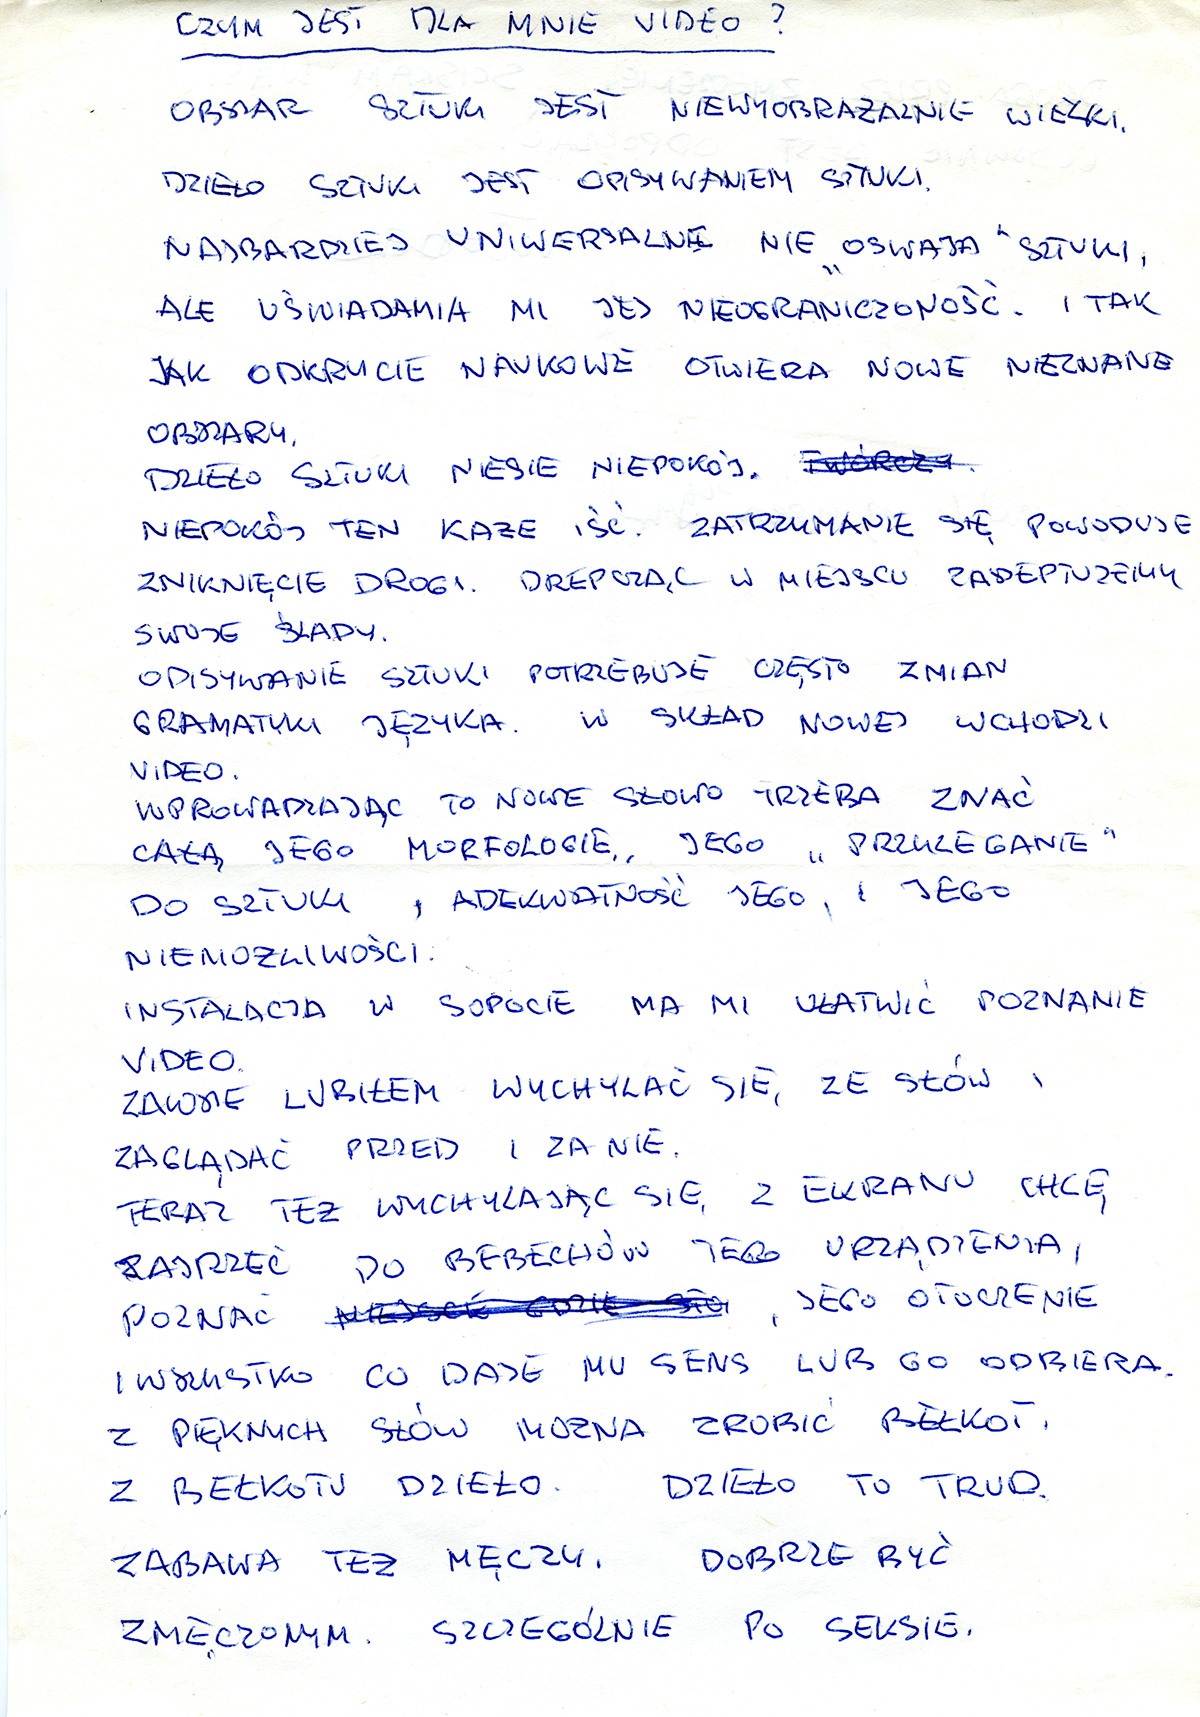 CZYM JEST DLA MNIE VIDEO ?
OBSZAR SZTUKI JEST NIEWYOBRAŻALNIE WIELKI.
DZIEŁO SZTUKI JEST OPISYWANIEM SZTUKI.
NAJBARDZIEJ UNIWERSALNE NIE „OSWAJA" SZTUKI,
ALE UŚWIADAMIA MI JEJ NIEOGRANICZONOŚĆ. I TAK
JAK ODKRYCIE NAUKOWE OTWIERA NOWE NIEZNANE
OBSZARY.
DZIEŁO SZTUKI NIESIE NIEPOKÓJ. TWÓRCZY.
NIEPOKÓJ TEN KAŻE IŚĆ. ZATRZYMANIE SIĘ POWODUJE
ZNIKNIĘCIE DROGI. DREPCZĄC W MIEJSCU ZADEPTUJEMY
SWOJE ŚLADY.
OPISYWANIE SZTUKI POTRZEBUJE CZĘSTO ZMIAN
GRAMATYKI JĘZYKA. W SKŁAD NOWEJ WCHODZI
VIDEO.
WPROWADZAJĄC TO NOWE SŁOWO TRZEBA ZNAĆ
CAŁĄ JEGO MORFOLOGIĘ, JEGO „PRZYLEGANIE"
DO SZTUKI , ADEKWATNOŚĆ JEGO, I JEGO
NIEMOŻLIWOŚCI.
INSTALACJA W SOPOCIE MA MI UŁATWIĆ POZNANIE
VIDEO.
ZAWSZE LUBIŁEM WYCHYLAĆ SIĘ ZE SŁÓW I
ZAGLĄDAĆ PRZED I ZA NIE.
TERAZ TEŻ WYCHYLAJĄC SIĘ Z EKRANU CHCĘ
ZAJRZEĆ DO BEBECHÓW TEGO URZĄDZENIA,
POZNAĆ MIEJSCE GDZIE STOI , JEGO OTOCZENIE
I WSZYSTKO CO DAJE MU SENS LUB GO ODBIERA.
Z PIĘKNYCH SŁÓW MOŻNA ZROBIĆ BEŁKOT.
Z BEŁKOTU DZIEŁO. DZIEŁO TO TRUD.
ZABAWA TEŻ MĘCZY. DOBRZE BYĆ
ZMĘCZONYM. SZCZEGÓLNIE PO SEKSIE.